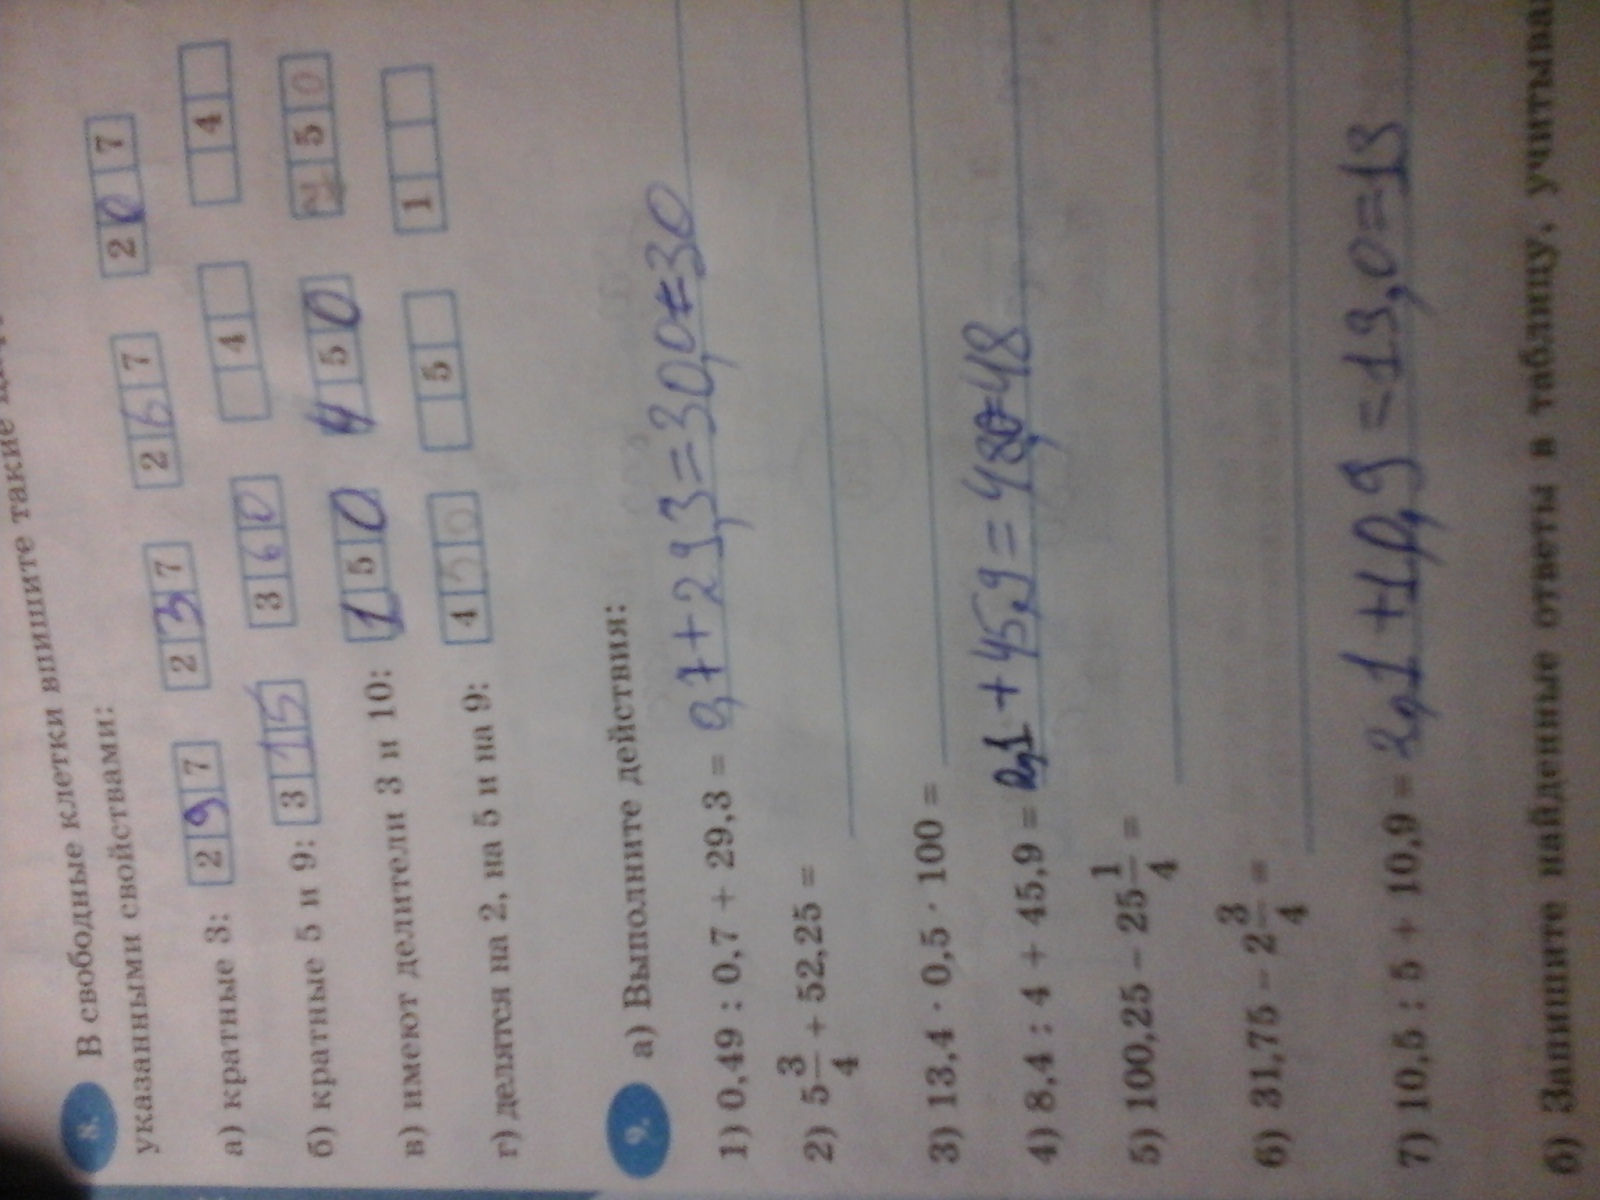 8. В свободные клетки впишите такие
указанными свойствами:
а) кратные 3: 2 9 7 2 3 7 2 6 7 2 0 7
б) кратные 5 и 9: 3 1 5 3 6 0 4 4
в) имеют делители 3 и 10: 1 5 0 4 5 0 2 5 0
г) делятся на 2, на 5 и на 9: 4 5 0 5 1
9. а) Выполните действия:
1) 0,49 : 0,7 + 29,3 = 0,7 + 29,3 = 30,0 = 30
2) 5 3/4 + 52,25 =
3) 13,4 · 0,5 · 100 =
4) 8,4 : 4 + 45,9 = 2,1 + 45,9 = 48,0 = 48
5) 100,25 − 25 1/4 =
6) 31,75 − 2 3/4 =
7) 10,5 : 5 + 10,9 = 2,1 + 10,9 = 13,0 = 13
б) Запишите найденные ответы в таблицу,